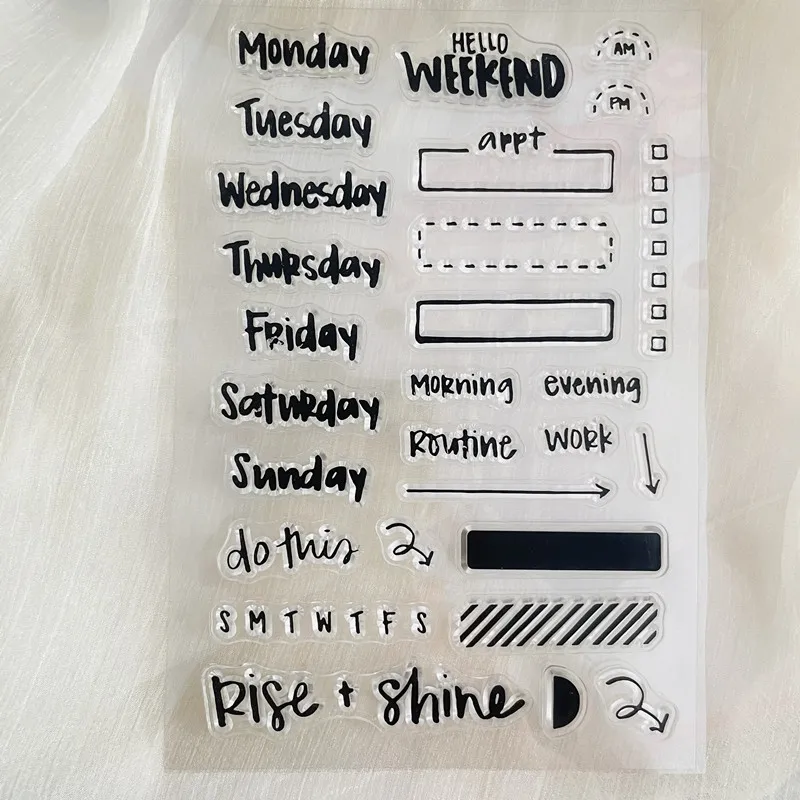 Monday
HELLO
WEEKEND
AM
PM
Tuesday
appt
Wednesday
Thursday
Friday
Saturday
Morning evening
Routine WORK
Sunday
do this
S M T W T F S
Rise + shine